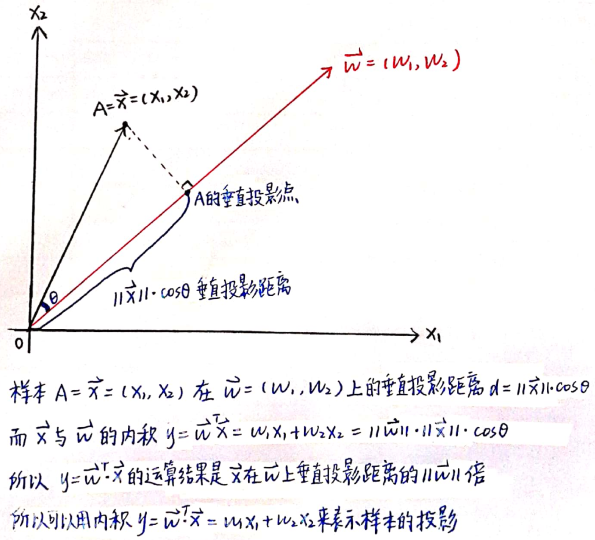 x₂
w⃗ = (w₁, w₂)
A=x⃗=(x₁,x₂)
A的垂直投影点
θ
||x⃗||·cosθ 垂直投影距离
O
x₁
样本 A=x⃗=(x₁,x₂) 在 w⃗=(w₁,w₂)上的垂直投影距离 d=||x⃗||·cosθ
而 x⃗ 与 w⃗ 的内积 y=w⃗ᵀx⃗=w₁x₁+w₂x₂=||w⃗||·||x⃗||·cosθ
所以 y=w⃗ᵀ·x⃗ 的运算结果是 x⃗在w⃗上垂直投影距离的||w⃗||倍
所以可以用内积 y=w⃗ᵀx⃗=w₁x₁+w₂x₂来表示样本的投影